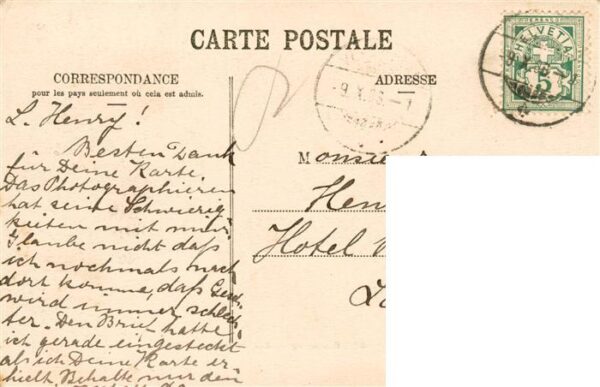 CARTE POSTALE
CORRESPONDANCE
pour les pays seulement où cela est admis.
ADRESSE
HELVETIA
5
-9.X.06.-1
L. Henry!
Besten Dank
für Deine Karte.
Das Photographieren
hat seine Schwierig-
keiten mit mir.
Glaube nicht daß
ich nochmals nach
dort komme, daß
wird immer schlech-
ter. Den Brief hatte
ich gerade eingesteckt
als ich Deine Karte er-
hielt. Behalte nur dein
Monsieur
Hen
Hotel